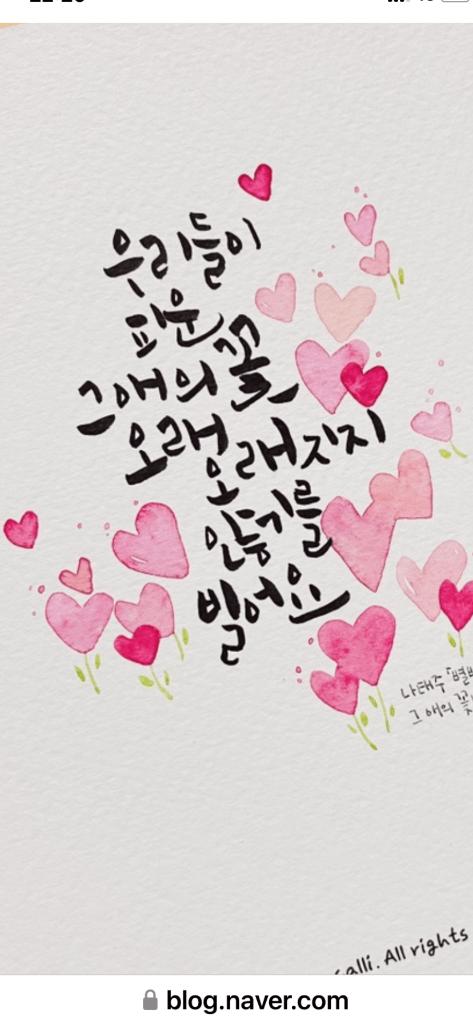 우리들이
피운
그애의 꽃
오래
오래 지지
않기를
빌어요
나태주
그 애의 꽃
alli. All rights
blog.naver.com